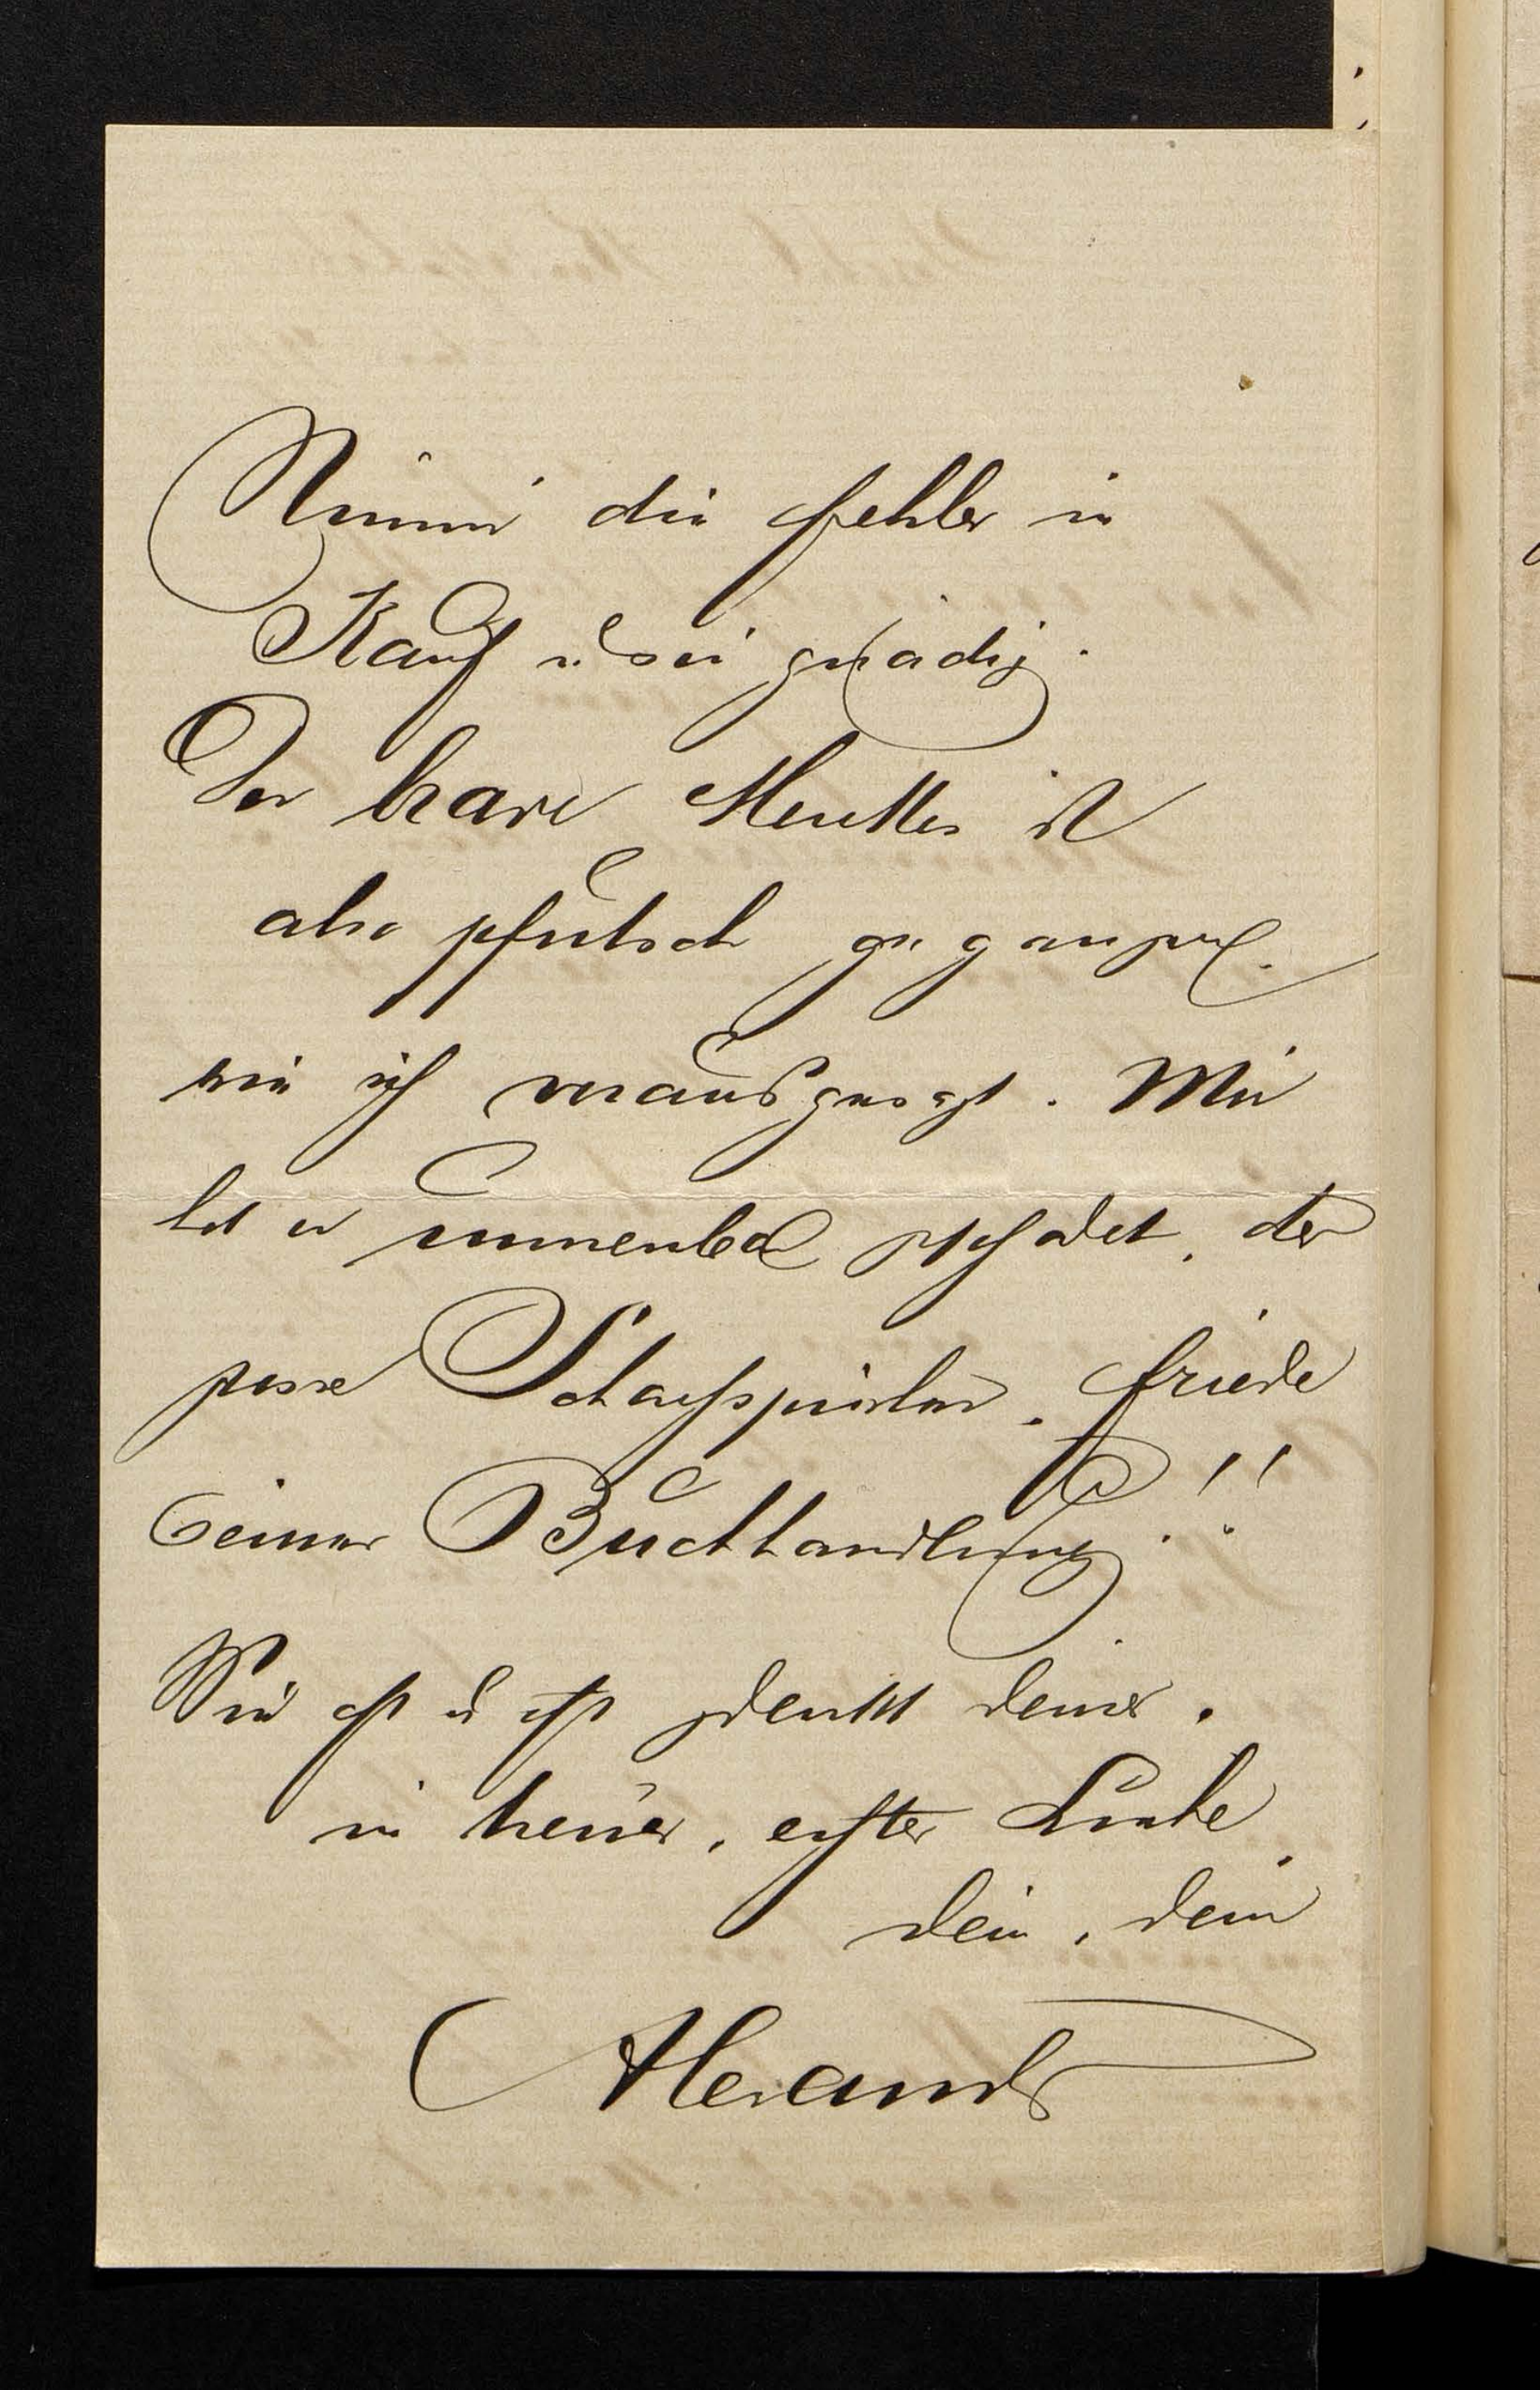 Nimm die Fehler in
Kauf u sei gnädig.
Der brave Meutter ist
also pfutsch gegangen.
wie ich vorausgesagt. Mir
hat er immenses geschadet, der
grosse Schafspinsler. Friede
seiner Buchhandlung!!
Wie oft u oft gedenkt deiner.
in treuer, erster Liebe
dein, dein
Alexander